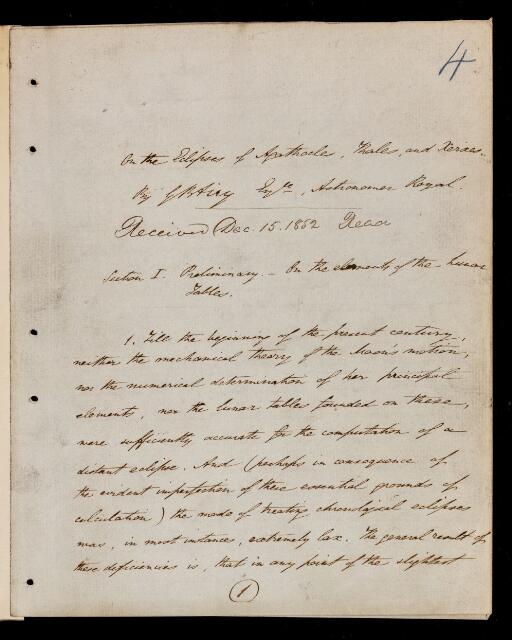 4
On the Eclipses of Agathocles, Thales, and Xerxes.
By G B Airy Esqre, Astronomer Royal.
Received Dec. 15. 1852 Read
Section I. Preliminary. – On the elements of the Lunar
Tables.
1. Till the beginning of the present century,
neither the mechanical theory of the Moon's motion,
nor the numerical determination of her principal
elements, nor the lunar tables founded on these,
were sufficiently accurate for the computation of a
distant eclipse. And (perhaps in consequence of
the evident imperfection of these essential grounds of
calculation) the mode of treating chronological eclipses
was, in most instances, extremely lax. The general result of
these deficiencies is, that in any point of the slightest
1